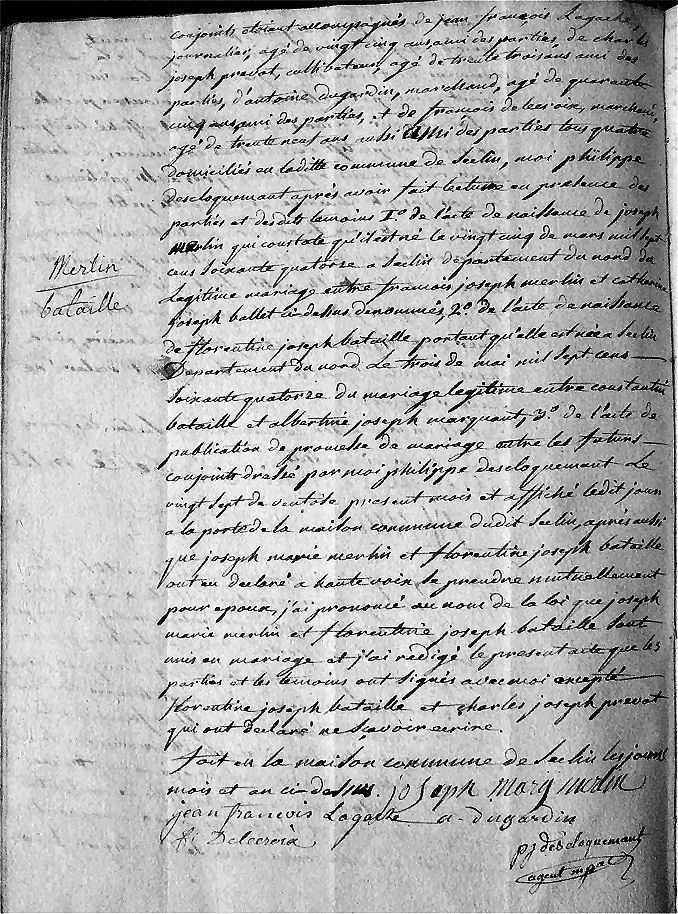 conjoints etoient accompagnés de jean françois Lagache,
journalier, agé de vingt cinq ans ami des parties, de charles
joseph prevot, cultivateur, agé de trente trois ans ami des
parties, d'antoine dugardin, marchand, agé de quarante
cinq ans, ami des parties, et de francois delecroix, marchand,
agé de trente neuf ans aussi ami des parties tous quatre
domiciliés en laditte commune de Seclin, moi philippe
descloquemant après avoir fait lecture en presence des
parties et desdits temoins 1.o de l'acte de naissance de joseph
merlin qui constate qu'il est né le vingt cinq de mars mil sept
cens soixante quatorze a Seclin departement du nord du
Legitime mariage entre francois joseph merlin et catherine
joseph ballet ci-dessus denommés, 2.o de l'acte de naissance
de florentine joseph bataille portant qu'elle est née a Seclin
Departement du nord Le trois de mai mil sept cens
soixante quatorze du mariage legitime entre constantin
bataille et albertine joseph marquant, 3.o de l'acte de
publication de promesse de mariage entre les futurs
conjoints dressé par moi philippe descloquemant Le
vingt sept de ventose present mois et affiché ledit jour
a la porte de la maison commune dudit Seclin, après aussi
que joseph marie merlin et florentine joseph bataille
ont eu declaré a haute voix se prendre mutuellement
pour epoux, j'ai prononcé au nom de la loi que joseph
marie merlin et florentine joseph bataille sont
unis en mariage et j'ai redigé le present acte que les
parties et les temoins ont signés avec moi excepté
florentine joseph bataille et charles joseph prevot
qui ont declaré ne scavoir ecrire.
Merlin
bataille
fait en la maison commune de Seclin les jours
mois et an ci-dessus. joseph mary merlin
jean francois Lagache a-dugardin
f. Delecroix
pj descloquemant
agent mpal